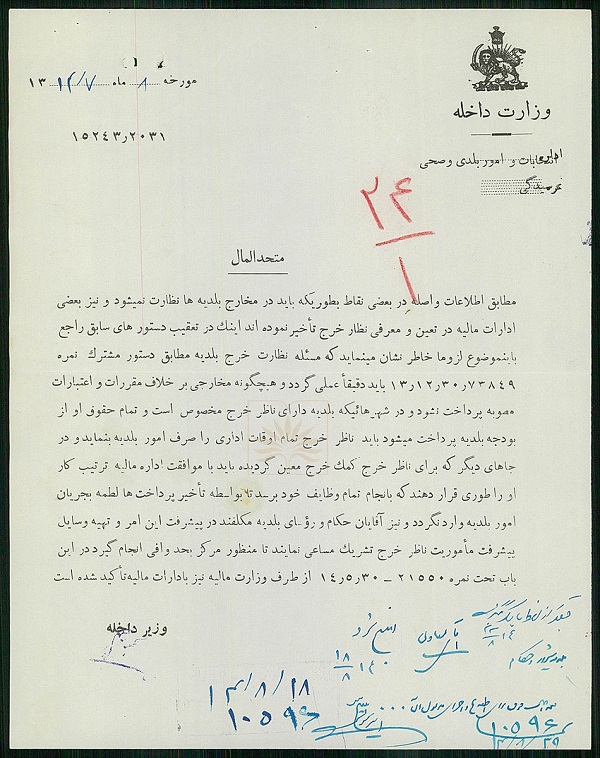 وزارت داخله
اداره انتخابات و امور بلدی و صحی
مورخه ۸ ماه ۱۳۱۴/۷
۱۵۲۴۳٫۲۰۳۱
۲۴
۱
متحدالمال
مطابق اطلاعات واصله در بعضی نقاط بطوریکه باید در مخارج بلدیه ها نظارت نمیشود و نیز بعضی
ادارات مالیه در تعین و معرفی نظار خرج تأخیر نموده اند اینك در تعقیب دستور های سابق راجع
باینموضوع لزوما خاطر نشان مینماید که مسئله نظارت خرج بلدیه مطابق دستور مشترك نمره
۱۳٫۱۲٫۳۰٫۷۳۸۴۹ باید دقیقاً عملی گردد و هیچگونه مخارجی بر خلاف مقررات و اعتبارات
مصوبه پرداخت نشود و در شهر هائیکه بلدیه دارای ناظر خرج مخصوص است و تمام حقوق او از
بودجه بلدیه پرداخت میشود باید ناظر خرج تمام اوقات اداری را صرف امور بلدیه بنماید و در
جاهای دیگر که برای ناظر خرج کمك خرج معین گردیده باید با موافقت اداره مالیه ترتیب کار
او را طوری قرار دهند که بانجام تمام وظایف خود برسد تا بواسطه تأخیر پرداخت ها لطمه بجریان
امور بلدیه وارد نگردد و نیز آقایان حکام و رؤسای بلدیه مکلفند در پیشرفت این امر و تهیه وسایل
پیشرفت مأموریت ناظر خرج تشریك مساعی نمایند تا منظور مرکز بحد وافی انجام گیرد در این
باب تحت نمره ۲۱۵۵۰ – ۱۴٫۵٫۳۰ از طرف وزارت مالیه نیز بادارات مالیه تأکید شده است
وزیر داخله
۱۴/۸/۱۸
۱۰۵۹۶
۱۰۵۹۶